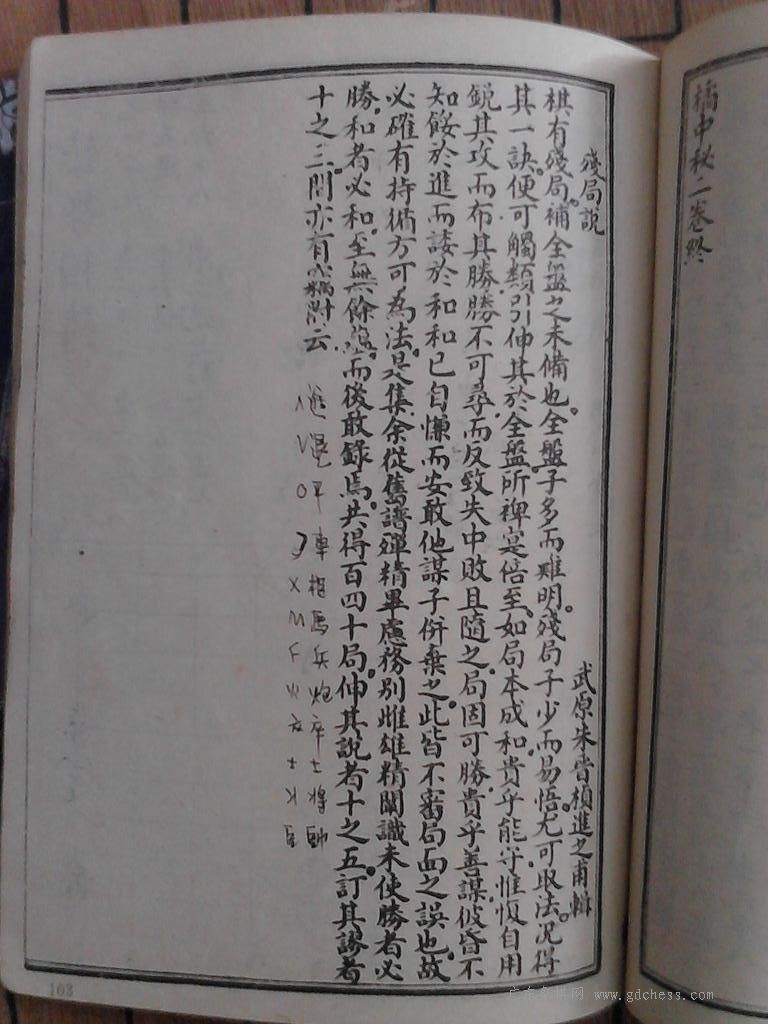 橘中秘二卷終
殘局說
武原朱晉楨進之甫輯
棋有殘局。補全盤之未備也。全盤子多而難明。殘局子少而易悟。尤可取法。况得
其一訣。便可觸類引伸其於全盤所裨寔倍至。如局本成和。貴乎能守。惟愎自用
鋭其攻而布其勝。勝不可尋。而反致失中敗且隨之。局固可勝。貴乎善謀。彼昏不
知餒於進而諉於和。和已自慊而安敢他謀子併棄之。此皆不審局面之誤也。故
必確有持循方可為法。是集余從舊譜殫精畢慮務別雌雄精闡識未使勝者必
勝。和者必和。至無餘蘊。而後敢錄焉。共得百四十局。伸其說者十之五訂其謬者
十之三。間亦有附云.
進退平車相馬兵炮卒士將帥
X M F
103
www.gdchess.com